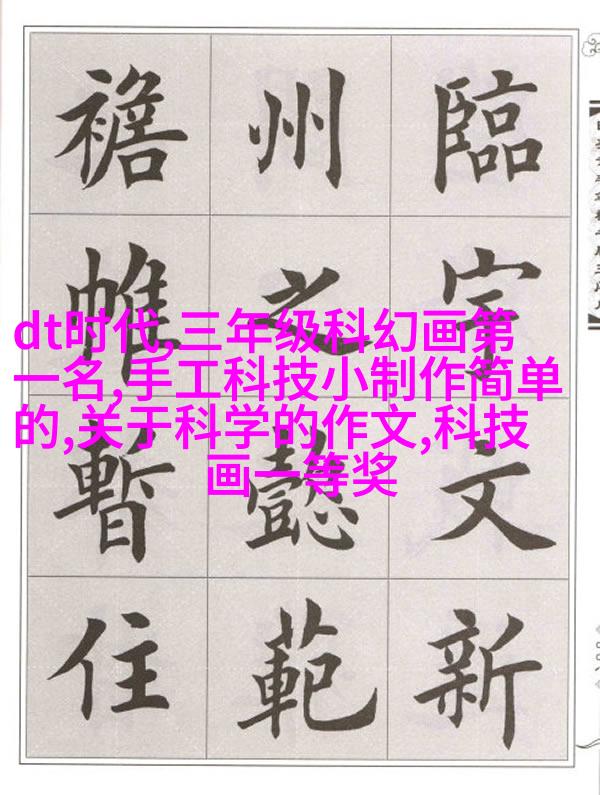 臨宇文新
州之懿範
襜帷暫住
dt时代,三年级科幻画第
一名,手工科技小制作简单
的,关于科学的作文,科技
画一等奖